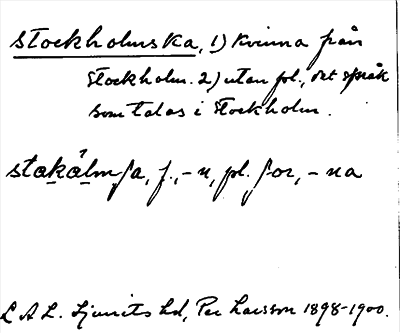 stockholmska, 1) kvinna från
Stockholm. 2) utan pl., det språk
som talas i Stockholm.
stakålmſa, f., -n, pl. ſor, -na
L A L. Ljunits hd, Per Larsson 1898-1900.